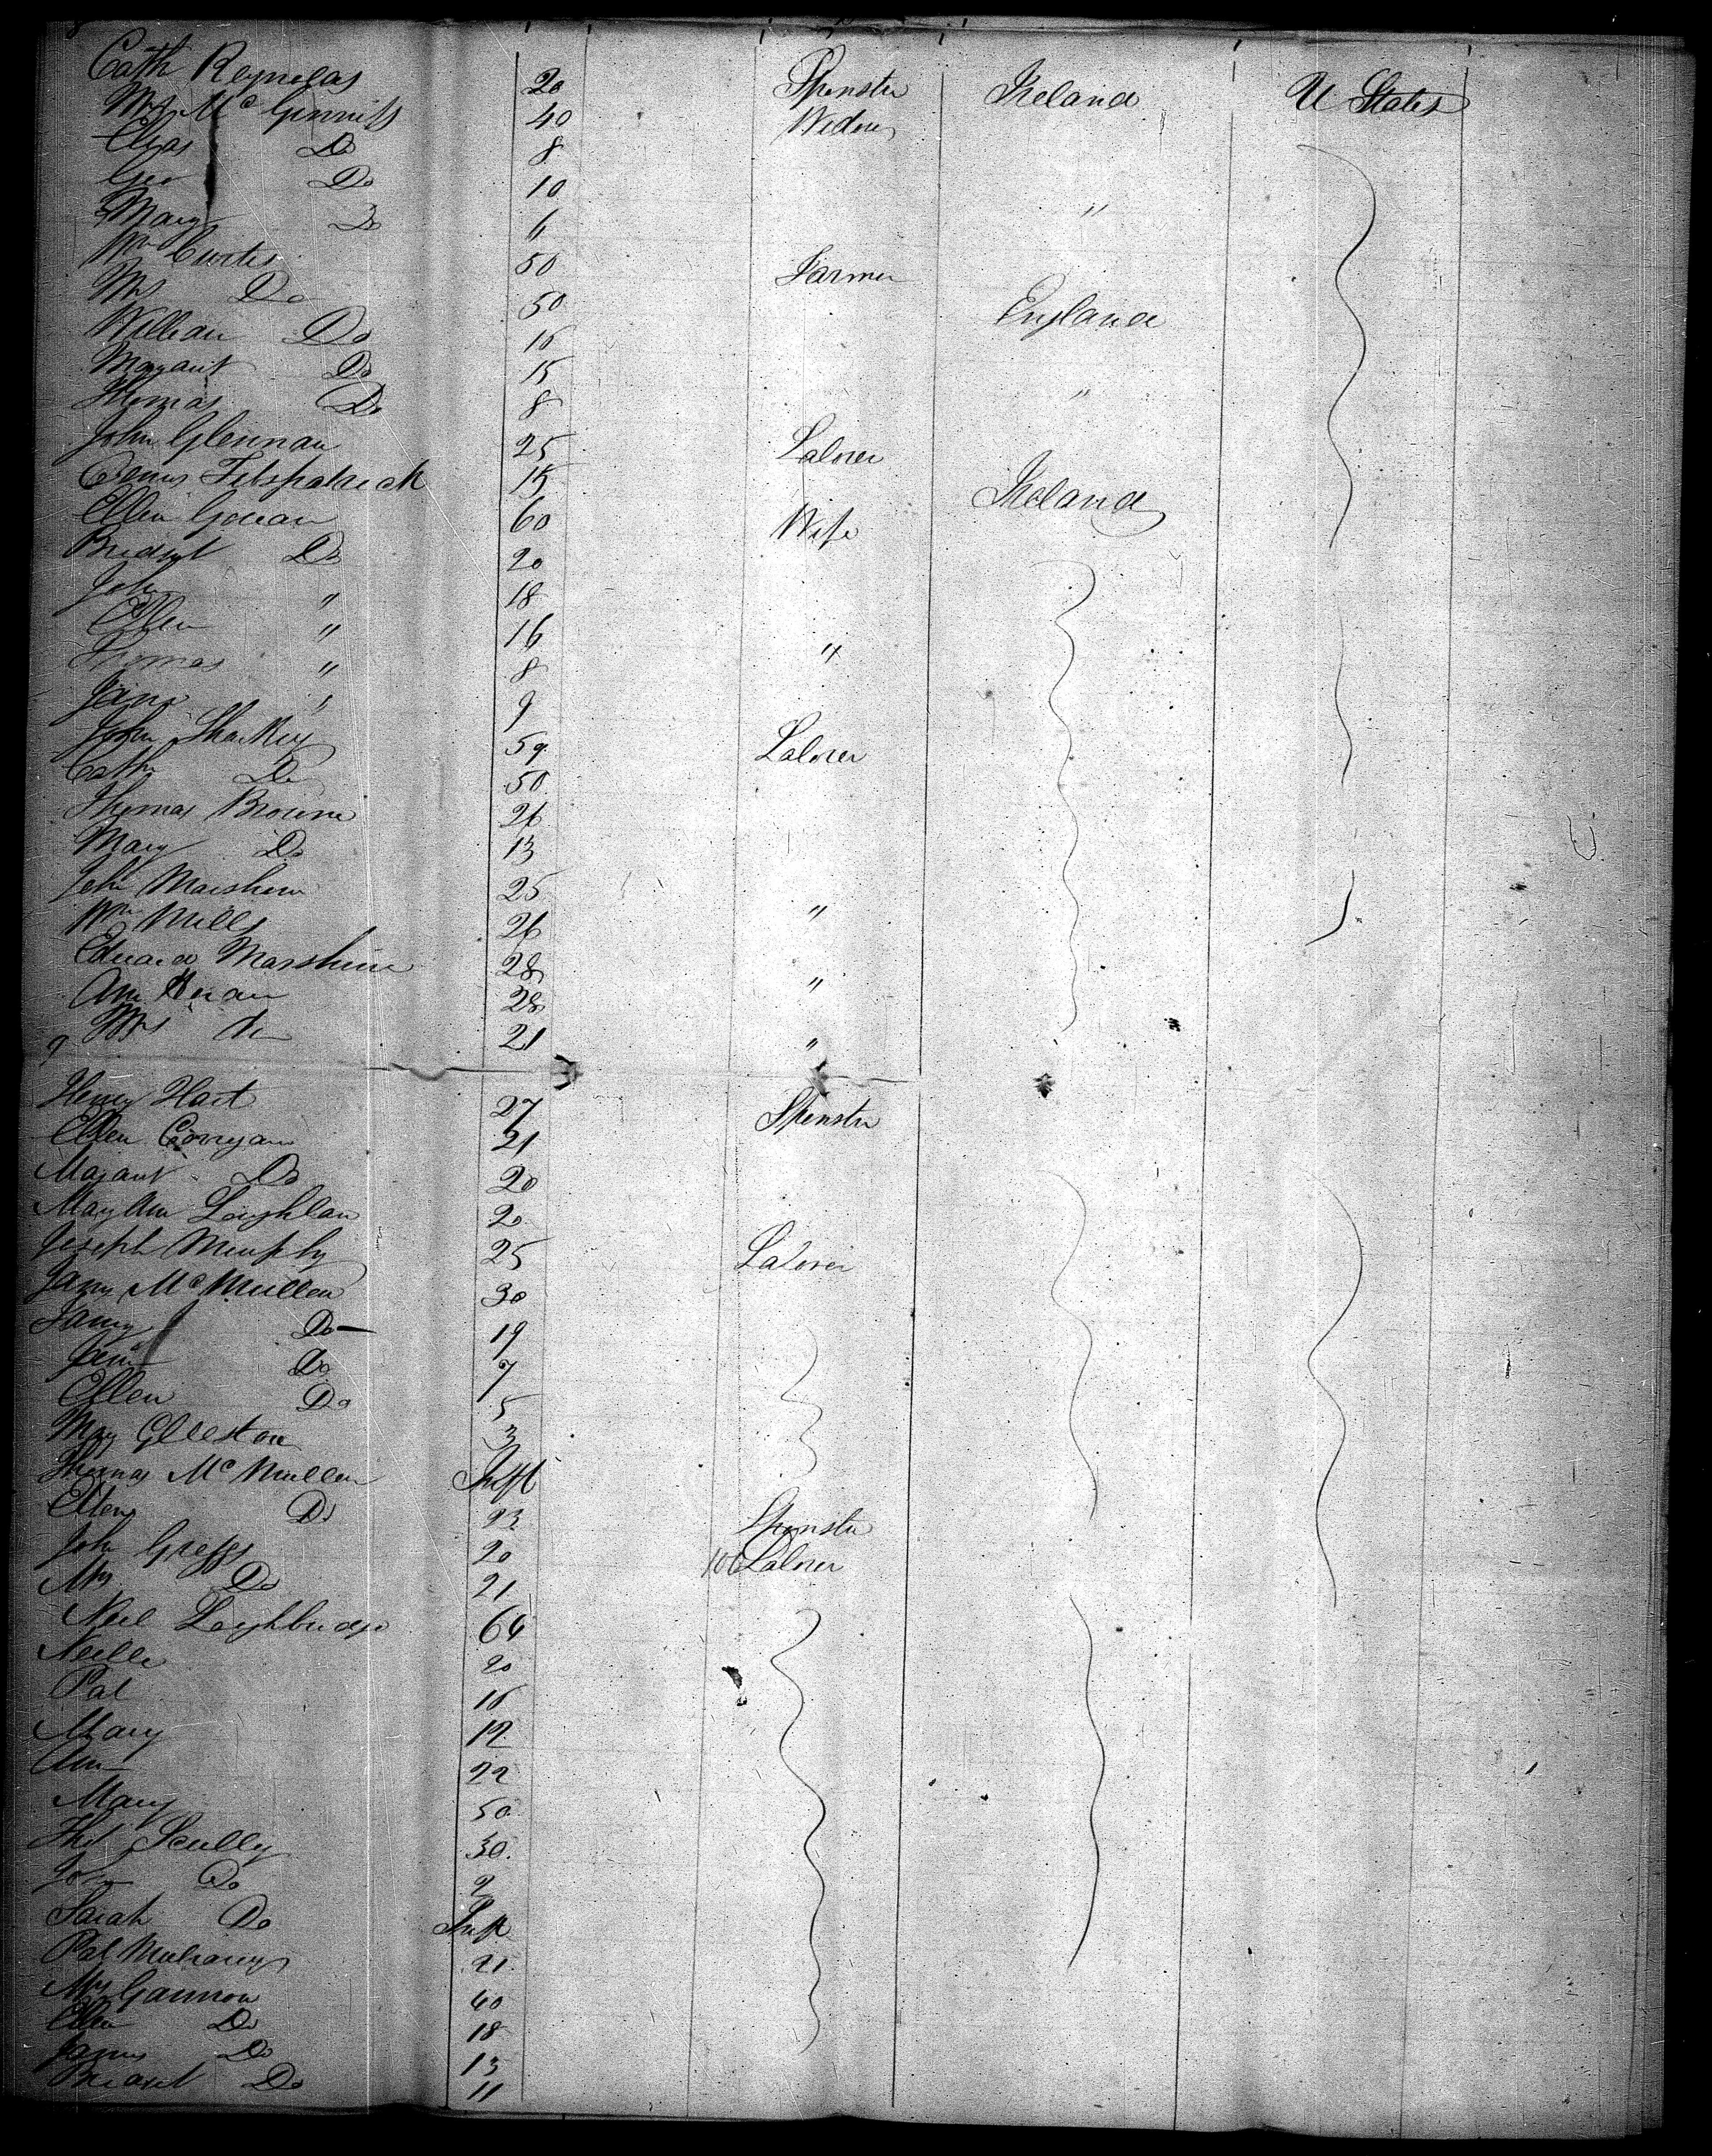 Cath Reynolds 20 Spinster Ireland U States
Mrs McGinniss 40 Widow
Chas Do 8
Geo Do 10
Mary Do 6 "
Mr Curtis 50 Farmer
Mrs Do 50 England
William Do 16
Margaret Do 15
Thomas Do 8 "
John Glennan 25 Laborer
Denis Fitspatrick 15 Ireland
Ellen Goran 60 Wife
Bridgt Do 20
John " 18
Ellen " 16
Thomas " 8 "
Jane " 9
John Sharkey 59 Laborer
Cath Do 50
Thomas Browne 26
Mary Do 13
John 25
Wm Mills 26 "
Edward 28
Ann 28 "
Mrs Do 21 "
Henry Hart 27 Spinster
Ellen Corrigan 21
Margaret Do 20
Mary Ann Loughlan 20
Joseph Murphy 25 Laborer
James McMullen 30
Do 19
Jane Do 7
Ellen Do 5
Mary 3
Thomas McMullen Inft
Ellen Do 23 Spinster
John Greggs 20 100 Laborer
Mrs Do 21
Neil 64
Nelle 20
Pat 16
Mary 12
Ann 22
Mary 50
Scully 30
Do 2
Sarah Do Inft
Pat 21
Mrs Gannon 40
Ellen Do 18
James Do 13
Do 11